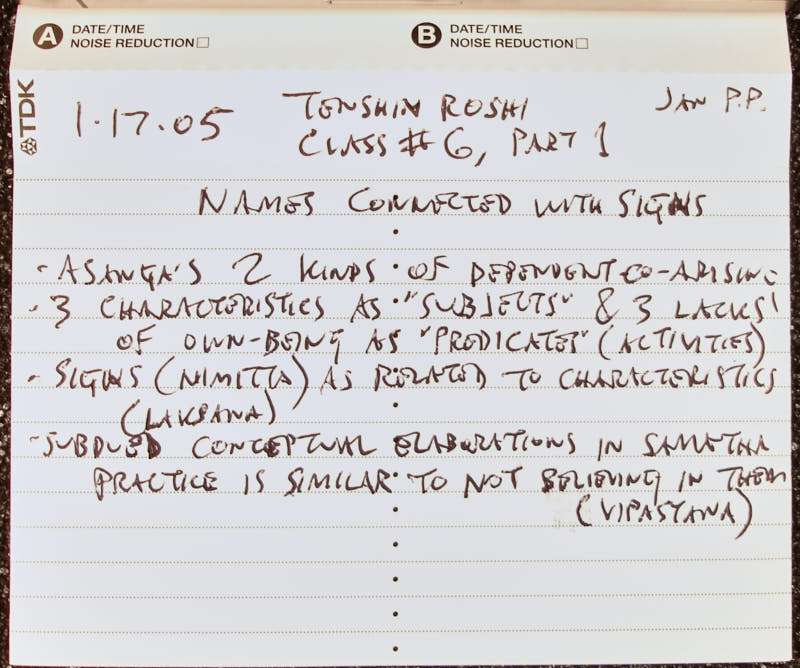 A DATE/TIME
NOISE REDUCTION
B DATE/TIME
NOISE REDUCTION
TDK
1·17·05
TENSHIN ROSHI
JAN P.P.
CLASS #6, PART 1
NAMES CONNECTED WITH SIGNS
· ASANGA'S 2 KINDS OF DEPENDENT CO-ARISING
· 3 CHARACTERISTICS AS "SUBJECTS" & 3 LACKS
OF OWN-BEING AS "PREDICATES" (ACTIVITIES)
· SIGNS (NIMITTA) AS RELATED TO CHARACTERISTICS
(LAKSANA)
· SUBDUED CONCEPTUAL ELABORATIONS IN SAMATHA
PRACTICE IS SIMILAR TO NOT BELIEVING IN THEM
(VIPASYANA)